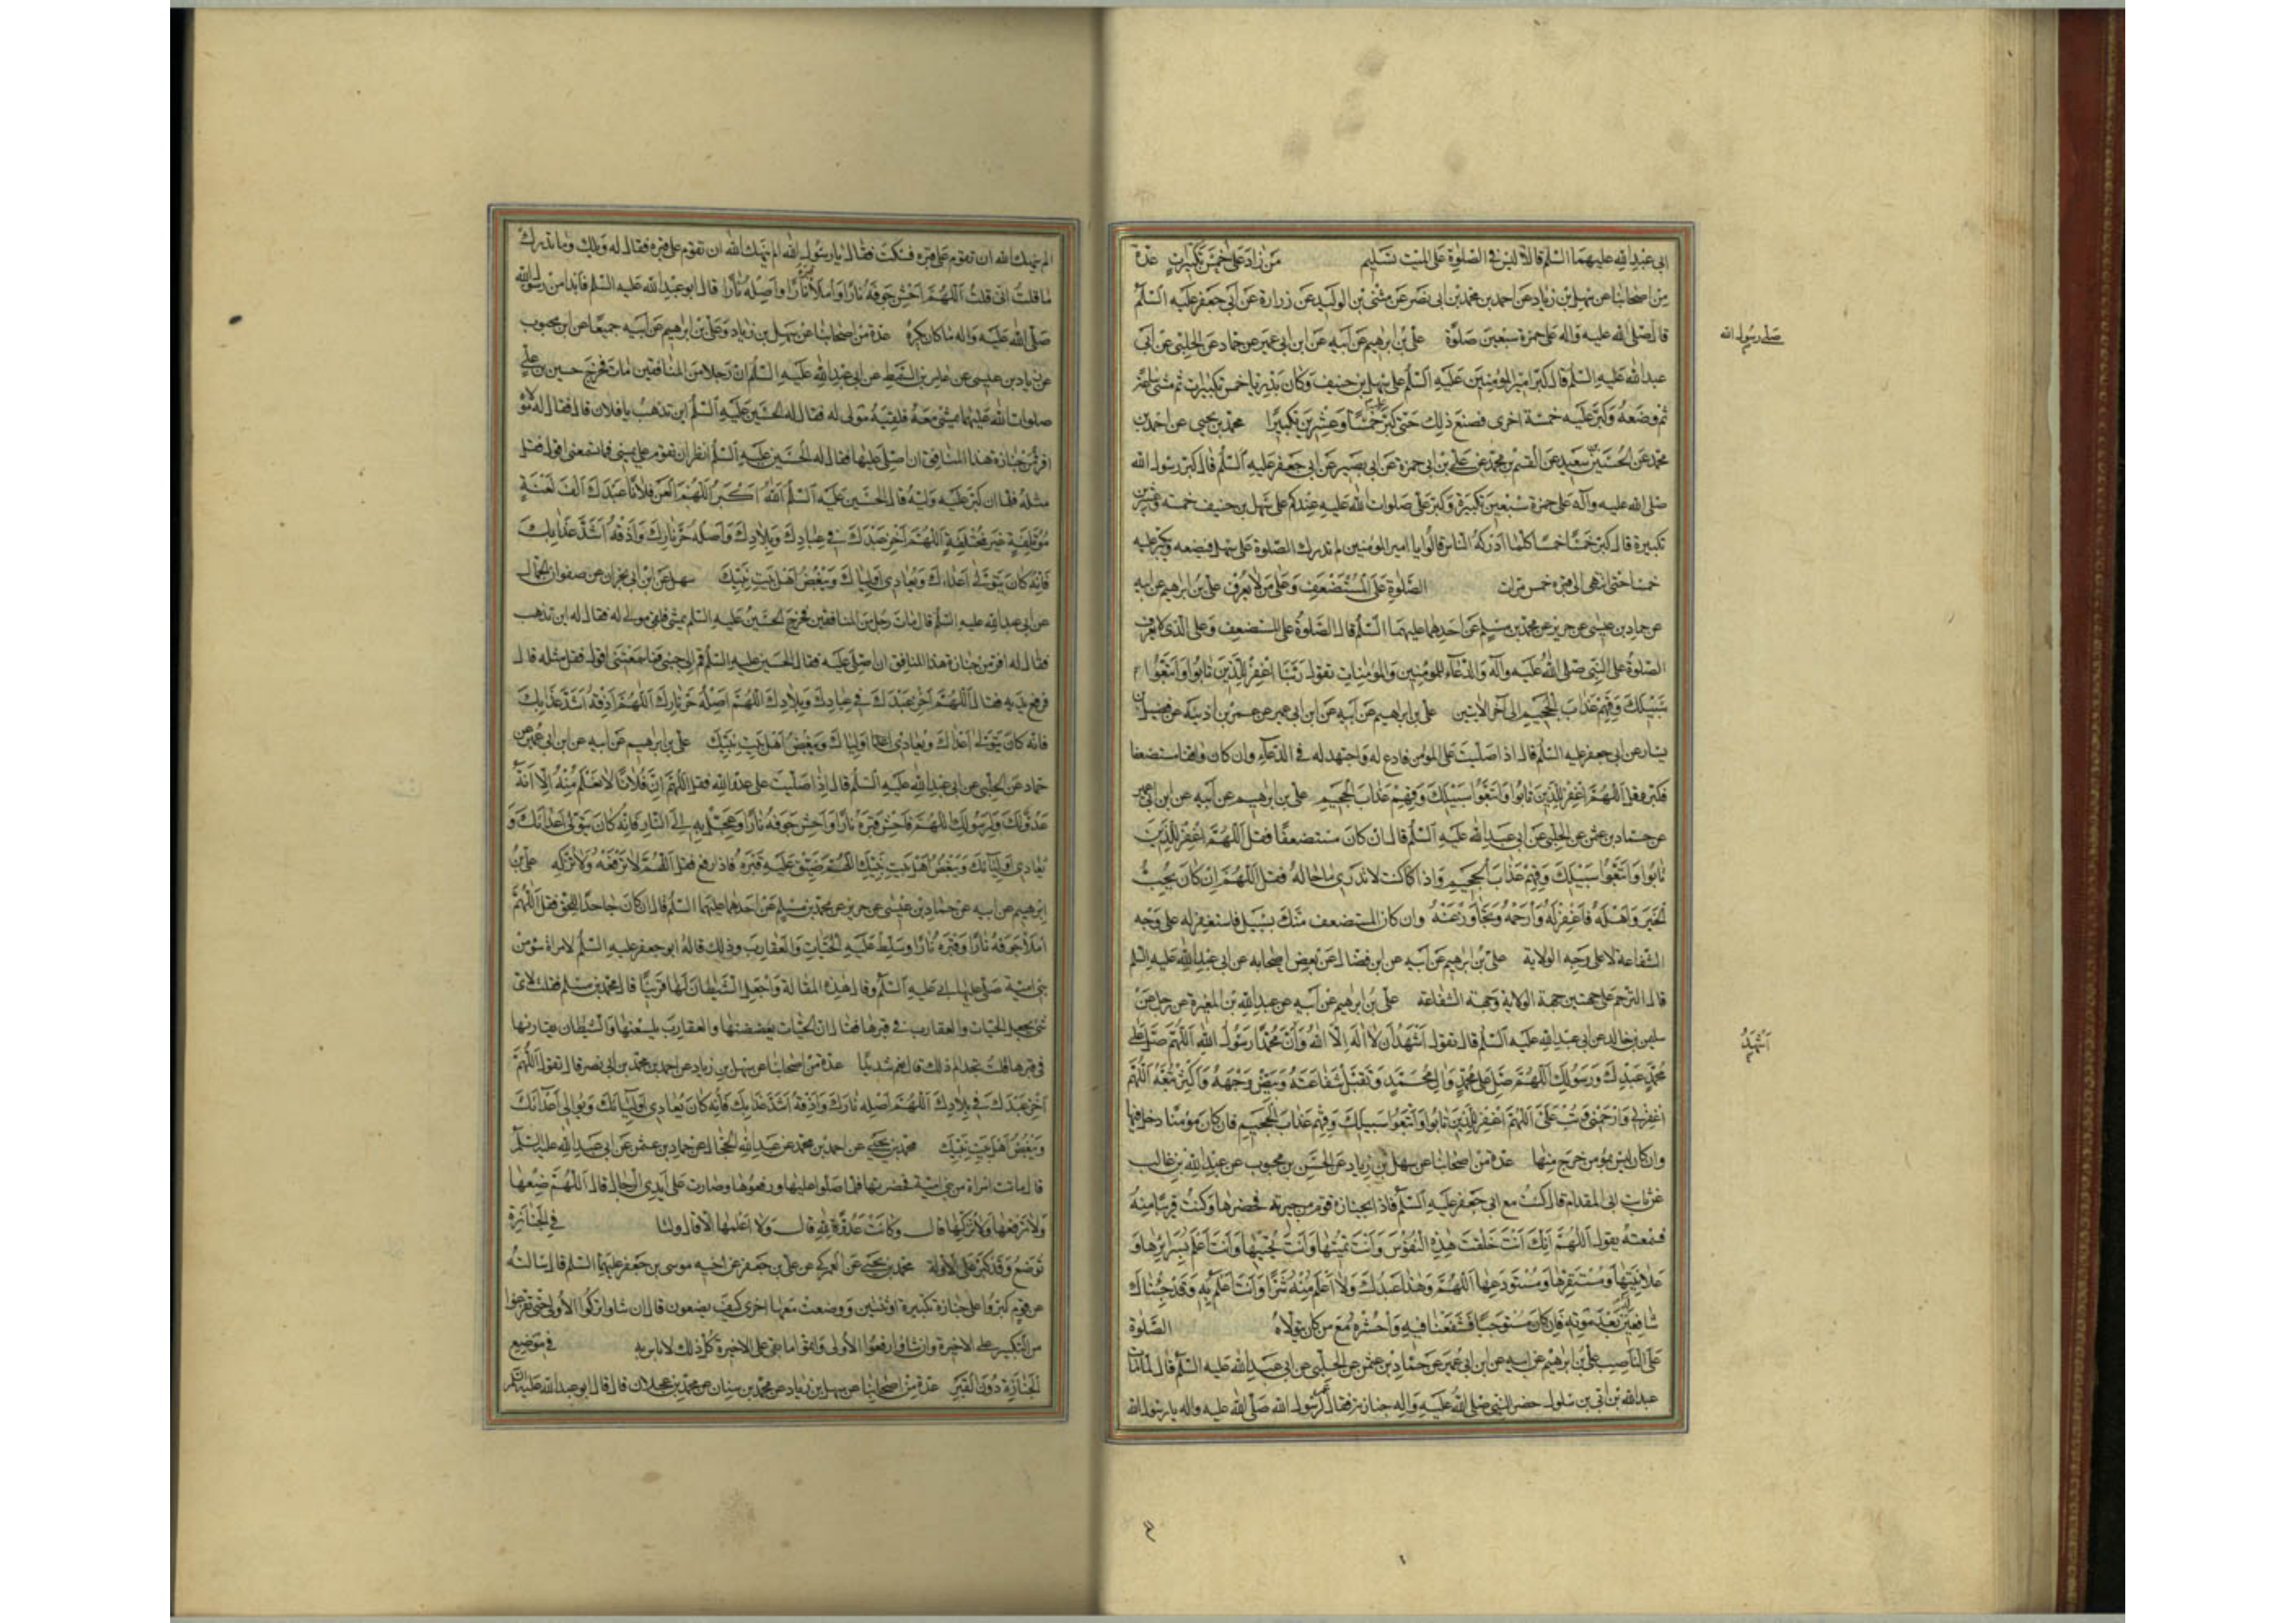 ابى عبد الله عليهما السلم قالا ليس فى الصلوة على الميت تسليم من زاد على خمس تكبيرات عدة
من اصحابنا عن سهل بن زياد عن احمد بن محمد بن ابى نصر عن مثنى بن الوليد عن زرارة عن ابى جعفر عليه السلم
قال صلى الله عليه واله على حمزة سبعين صلوة على بن ابرهيم عن ابيه عن ابن ابى عمير عن حماد عن الحلبى عن ابى
صلى رسول الله
عبد الله عليه السلم قال كبر امير المؤمنين عليه السلم على سهل بن حنيف وكان بدريا خمس تكبيرات ثم مشى ساعة
ثم وضعه وكبر عليه خمسة اخرى فصنع ذلك حتى كبر عليه خمسا وعشرين تكبيرا محمد بن يحيى عن احمد بن
محمد عن الحسين بن سعيد عن القسم بن محمد عن على بن ابى حمزة عن ابى بصير عن ابى جعفر عليه السلم قال كبر رسول الله
صلى الله عليه وآله على حمزة سبعين تكبيرة وكبر على صلوات الله عليه عندكم على سهل بن حنيف خمسة وعشرين
تكبيرة قال كبر خمسا خمسا كلما ادركه الناس قالوا يا امير المؤمنين لم ندرك الصلوة على سهل فيضعه ويكبر عليه
خمسا حتى انتهى الى قبره خمس مرات الصلوة على المستضعف وعلى من لا يعرف على بن ابرهيم عن ابيه
عن حماد بن عيسى عن حريز عن محمد بن مسلم عن احدهما عليهما السلم قال الصلوة على المستضعف وعلى الذى لا يعرف
الصلوة على النبى صلى الله عليه وآله والدعاء للمؤمنين والمؤمنات تقول ربنا اغفر للذين تابوا واتبعوا
سبيلك وقهم عذاب الجحيم الى آخر الايتين على بن ابراهيم عن ابيه عن ابن ابى عمير عن عمر بن اذينة عن فضيل بن
يسار عن ابى جعفر عليه السلم قال اذا صليت على المؤمن فادع له واجتهد له فى الدعاء وان كان واقفا مستضعفا
فكبر وقل اللهم اغفر للذين تابوا واتبعوا سبيلك وقهم عذاب الجحيم على بن ابراهيم عن ابيه عن ابن ابى عمير
عن حماد بن عثمن عن الحلبى عن ابى عبد الله عليه السلم قال ان كان مستضعفا فقل اللهم اغفر للذين
تابوا واتبعوا سبيلك وقهم عذاب الجحيم واذا كنت لا تدرى ما حاله فقل اللهم ان كان يحب
الخير واهله فاغفر له وارحمه وتجاوز عنه وان كان المستضعف منك بسبيل فاستغفر له على وجه
الشفاعة لا على وجه الولاية على بن ابرهيم عن ابيه عن ابن فضال عن بعض اصحابه عن ابى عبد الله عليه السلم
قال الترحم على جهتين جهة الولاية وجهة الشفاعة على بن ابرهيم عن ابيه عن عبد الله بن المغيرة عن رجل عن
سليمن بن خالد عن ابى عبد الله عليه السلم قال تقول اشهد ان لا اله الا الله وان محمدا رسول الله اللهم صل على
اشهد
محمد عبدك ورسولك اللهم صل على محمد وال محمد وتقبل شفاعته وبيض وجهه واكثر تبعه اللهم
اغفر لى وارحمنى وتب على اللهم اغفر للذين تابوا واتبعوا سبيلك وقهم عذاب الجحيم فان كان مؤمنا دخل فيها
وان كان ليس بمؤمن خرج منها عدة من اصحابنا عن سهل بن زياد عن الحسن بن محبوب عن عبد الله بن غالب
عن ثابت ابى المقدام قال كنت مع ابى جعفر عليه السلم فاذا بجنازة قوم من جيرته فحضرها وكنت قريبا منه
فسمعته يقول اللهم انك انت خلقت هذه النفوس وانت تميتها وانت تحييها وانت اعلم بسرايرها و
علانيتها ومستقرها ومستودعها اللهم وهذا عبدك ولا اعلم منه شرا وانت اعلم به وقد جئناك
شافعين له بعد موته فان كان مستوجبا فشفعنا فيه واحشره مع من كان يتولاه الصلوة
على الناصب على بن ابرهيم عن ابيه عن ابن ابى عمير عن حماد بن عثمن عن الحلبى عن ابى عبد الله عليه السلم قال لما مات
عبد الله بن ابى بن سلول حضر النبى صلى الله عليه واله جنازته فقال عمر لرسول الله صلى الله عليه واله يا رسول الله
الم ينهك الله ان تقوم على قبره فسكت فقال يا رسول الله الم ينهك الله ان تقوم على قبره فقال له ويلك وما يدريك
ما قلت انى قلت اللهم احش جوفه نارا واملأ قبره نارا واصله نارا قال ابو عبد الله عليه السلم فابدا من رسول الله
صلى الله عليه واله ما كان يكره عدة من اصحابنا عن سهل بن زياد وعلى بن ابرهيم عن ابيه جميعا عن ابن محبوب
عن زياد بن عيسى عن عامر بن السمط عن ابى عبد الله عليه السلم ان رجلا من المنافقين مات فخرج حسين بن على
صلوات الله عليهما يمشى معه فلقيه مولى له فقال له الحسين عليه السلم اين تذهب يا فلان قال فقال له مولاه
افر من جنازة هذا المنافق ان اصلى عليها فقال له الحسين عليه السلم انظر ان تقوم على يمينى فما تسمعنى اقول فقل
مثله فلما ان كبر عليه وليه قال الحسين عليه السلم الله اكبر اللهم العن فلانا عبدك الف لعنة
مؤتلفة غير مختلفة اللهم اخز عبدك فى عبادك وبلادك واصله حر نارك واذقه اشد عذابك
فانه كان يتولى اعداءك ويعادى اولياك ويبغض اهل بيت نبيك سهل عن ابن ابى نجران عن صفوان الجمال
عن ابى عبد الله عليه السلم قال مات رجل من المنافقين فخرج الحسين عليه السلم يمشى فلقى مولى له فقال له اين تذهب
فقال له افر من جنازة هذا المنافق ان اصلى عليه فقال الحسين عليه السلم قم الى جنبى فما سمعتنى اقول فقل مثله قال
فرفع يديه فقال اللهم اخز عبدك فى عبادك وبلادك اللهم اصله حر نارك اللهم اذقه اشد عذابك
فانه كان يتولى اعداك ويعادى اولياك ويبغض اهل بيت نبيك على بن ابرهيم عن ابيه عن ابن ابى عمير عن
حماد عن الحلبى عن ابى عبد الله عليه السلم قال اذا صليت على عدو الله فقل اللهم ان فلانا لا نعلم منه الا انه
عدو لك ولرسولك اللهم فاحش قبره نارا واحش جوفه نارا وعجل به الى النار فانه كان يتولى اعدائك و
يعادى اوليائك ويبغض اهل بيت نبيك اللهم ضيق عليه قبره فاذا رفع فقل اللهم لا ترفعه ولا تزكه على بن
ابرهيم عن ابيه عن حماد بن عيسى عن حريز عن محمد بن مسلم عن احدهما عليهما السلم قال ان كان جاحدا للحق فقل اللهم
املأ جوفه نارا وقبره نارا وسلط عليه الحيات والعقارب وذلك قاله ابو جعفر عليه السلم لامراة سوء من
بنى امية صلى عليها ابى عليه السلم وقال هذه المقالة واجعل الشيطان لها قرينا قال محمد بن مسلم فقلت لاى
شئ يجعل الحيات والعقارب فى قبرها فقال ان الحيات يعضضنها والعقارب يلسعنها والشيطان يقارنها
فى قبرها قلت تجد الم ذلك قال نعم شديدا عدة من اصحابنا عن سهل بن زياد عن احمد بن محمد بن ابى نصر قال تقول اللهم
اخز عبدك فى بلادك اللهم اصله نارك واذقه اشد عذابك فانه كان يعادى اوليائك ويوالى اعدائك
ويبغض اهل بيت نبيك محمد بن يحيى عن احمد بن محمد عن عبد الله الحجال عن حماد بن عثمن عن ابى عبد الله عليه السلم
قال ماتت امراة من بنى امية فحضرتها فلما صلوا عليها ورفعوها وصارت على ايدى الرجال قال اللهم ضعها
ولا ترفعها ولا تزكها قال وكانت عدوة لله قال ولا اعلمها الا قال ولنا فى الجنازة
توضع وقد كبر على الاولة محمد بن يحيى عن العمركى عن على بن جعفر عن اخيه موسى بن جعفر عليهما السلم قال سالته
عن قوم كبروا على جنازة تكبيرة او ثنتين ووضعت معها اخرى كيف يصنعون قال ان شاوا تركوا الاولى حتى تفرغوا
من التكبير على الاخيرة وان شاؤا رفعوا الاولى واتموا ما بقى على الاخيرة كل ذلك لا باس به فى موضع
الجنازة دون القبر عدة من اصحابنا عن سهل بن زياد عن محمد بن سنان عن محمد بن عجلان قال قال ابو عبد الله عليه السلم